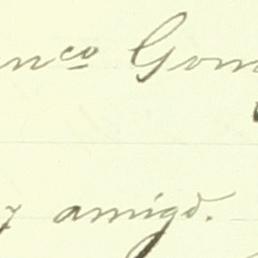 nco Gom
y amigo.